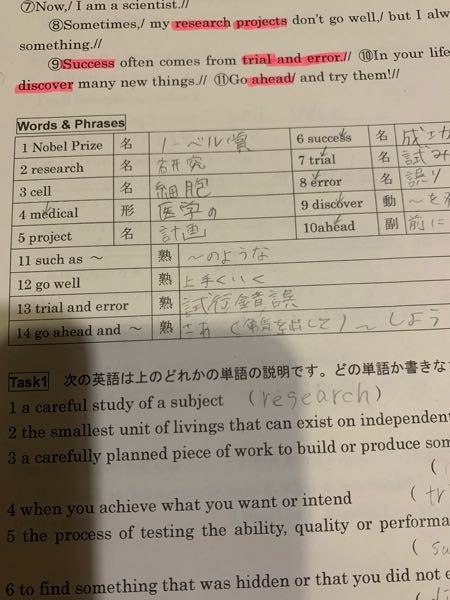 ⑦Now,/ I am a scientist.//
⑧Sometimes,/ my research projects don't go well,/ but I alw
something.//
⑨Success often comes from trial and error.// ⑩In your life
discover many new things.// ⑪Go ahead/ and try them!//
Words & Phrases
1 Nobel Prize 名 ノーベル賞 6 success 名 成功
2 research 名 研究 7 trial 名 試み
3 cell 名 細胞 8 error 名 誤り
4 medical 形 医学の 9 discover 動 〜を
5 project 名 計画 10ahead 副 前に
11 such as ～ 熟 〜のような
12 go well 熟 上手くいく
13 trial and error 熟 試行錯誤
14 go ahead and ～ 熟 さあ(勇気を出して)〜しよう
Task1 次の英語は上のどれかの単語の説明です。どの単語か書きな
1 a careful study of a subject (research)
2 the smallest unit of livings that can exist on independent
3 a carefully planned piece of work to build or produce som
(
4 when you achieve what you want or intend (tr
5 the process of testing the ability, quality or performa
(su
6 to find something that was hidden or that you did not e